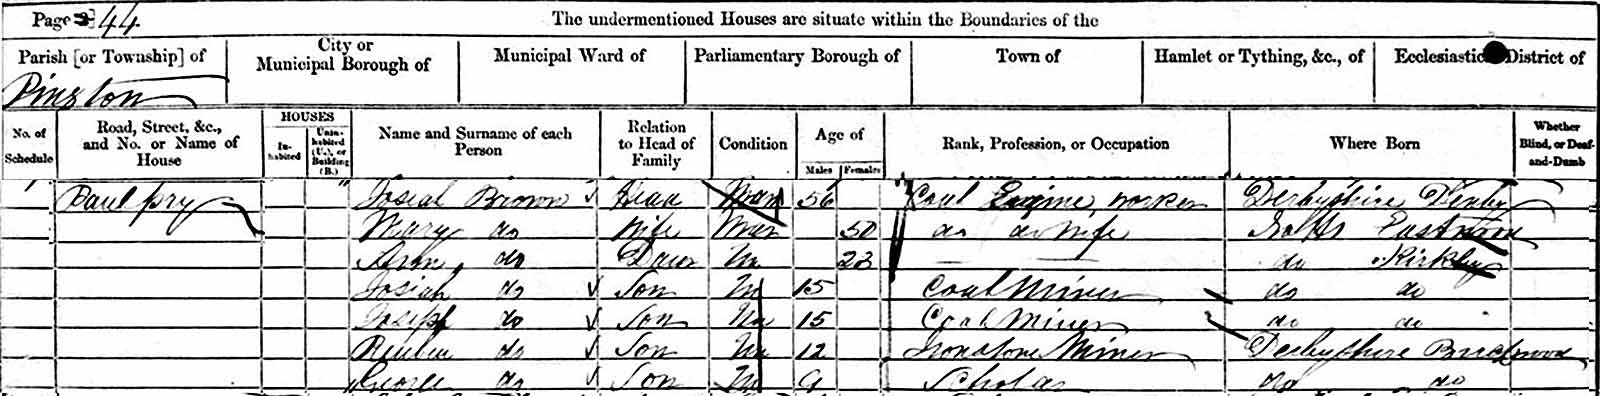 Page 44
The undermentioned Houses are situate within the Boundaries of the
Parish [or Township] of
City or Municipal Borough of
Municipal Ward of
Parliamentary Borough of
Town of
Hamlet or Tything, &c., of
Ecclesiastical District of
Pinxton
No. of Schedule
Road, Street, &c., and No. or Name of House
HOUSES
In-habited
Unin-habited (U.), or Building (B.)
Name and Surname of each Person
Relation to Head of Family
Condition
Age of
Males
Females
Rank, Profession, or Occupation
Where Born
Whether Blind, or Deaf-and-Dumb
Paul pry Josiah Brown Head Mar 56 Coal Engine worker Derbyshire Denby
Mary do Wife Mar 50 do do Wife Notts Eastwood
Ann do Daur Un 23 do Kirkby
Josiah do Son Un 15 Coal Miner do do
Joseph do Son Un 15 Coal Miner do do
Reuben do Son Un 12 Ironstone Miner Derbyshire
George do Son Un 9 Scholar do do